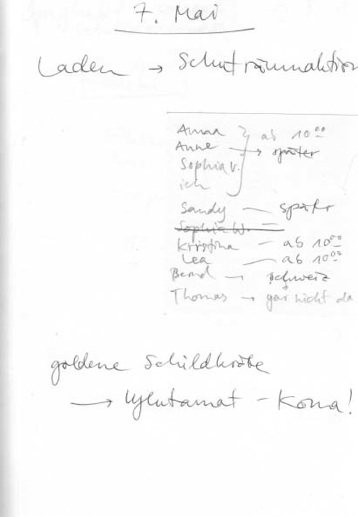 7. Mai
Laden → Schuträumaktion
Anna } ab 10⁰⁰
Anne → später
Sophia v.
ich
Sandy — später
Sophia W. —
Kristina — ab 10⁰⁰
Lea — ab 10⁰⁰
Bernd — Schweiz
Thomas → gar nicht da
goldene Schildkröte
→ Glutamat - Koma!